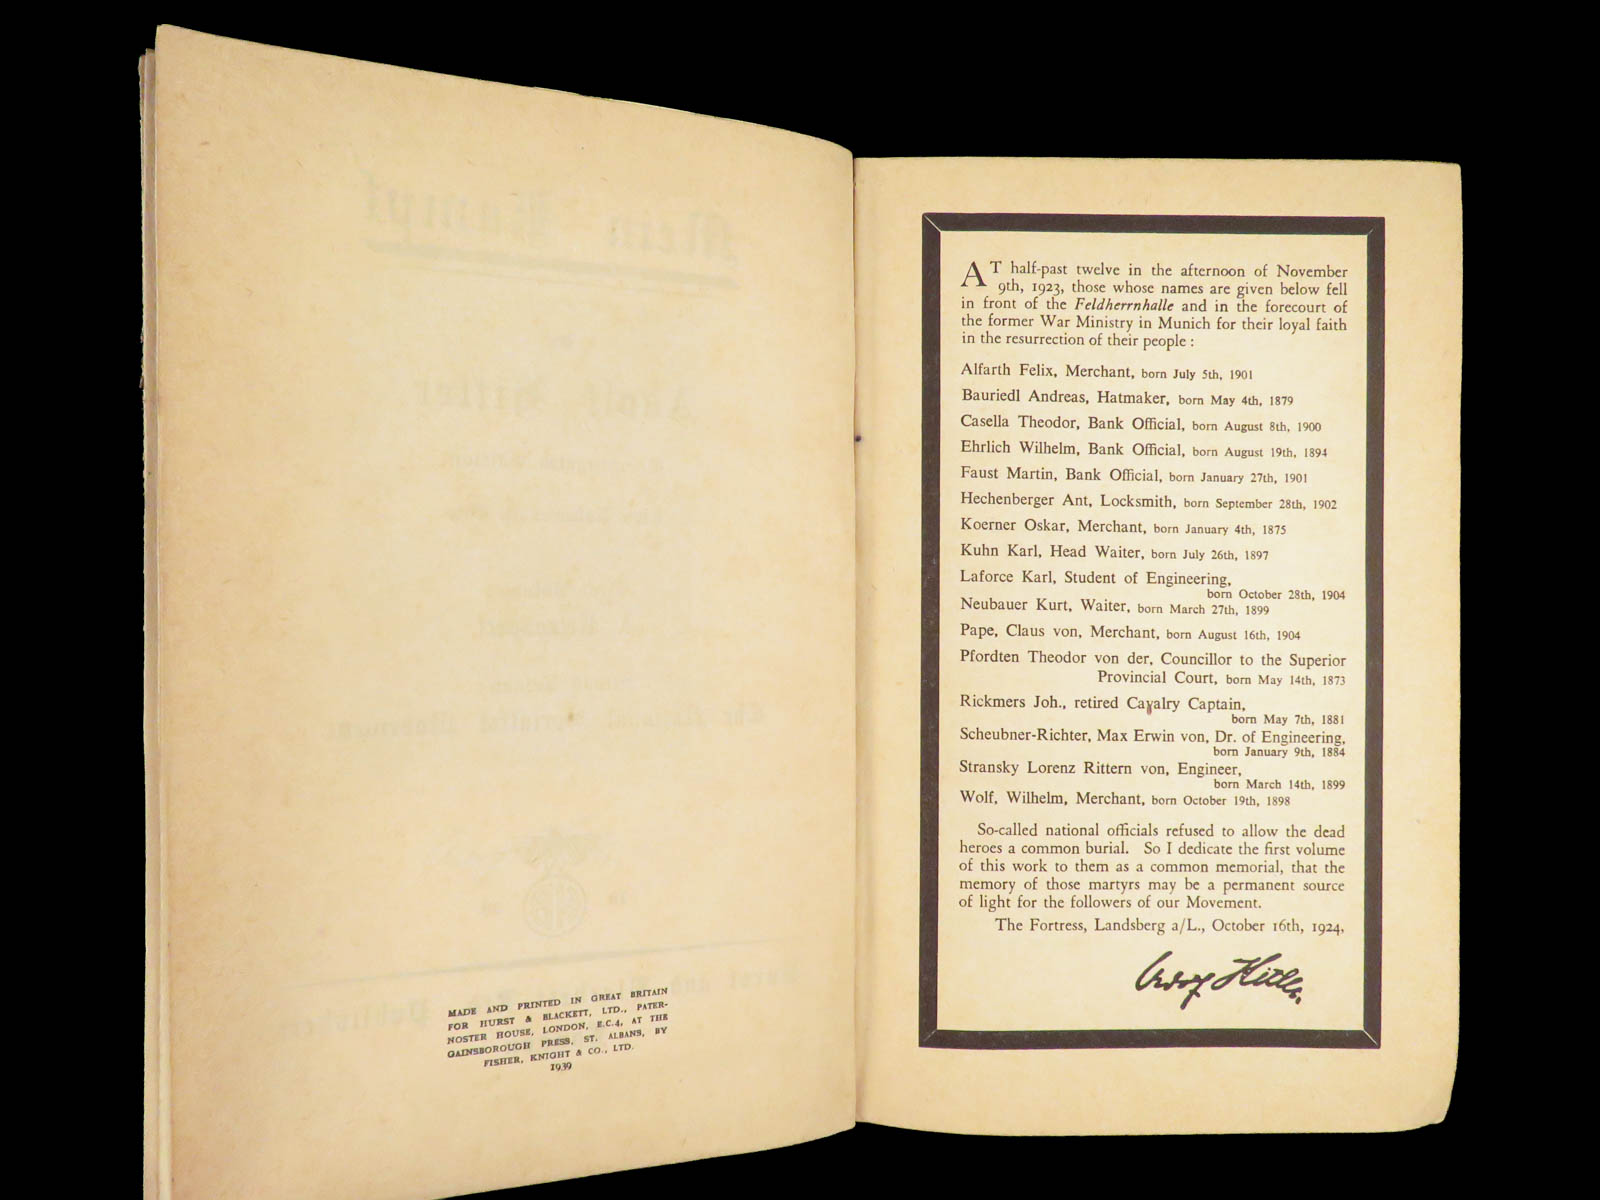 MADE AND PRINTED IN GREAT BRITAIN
FOR HURST & BLACKETT, LTD., PATER-
NOSTER HOUSE, LONDON, E.C.4, AT THE
GAINSBOROUGH PRESS, ST. ALBANS, BY
FISHER, KNIGHT & CO., LTD.
1939
AT half-past twelve in the afternoon of November
9th, 1923, those whose names are given below fell
in front of the Feldherrnhalle and in the forecourt of
the former War Ministry in Munich for their loyal faith
in the resurrection of their people :
Alfarth Felix, Merchant, born July 5th, 1901
Bauriedl Andreas, Hatmaker, born May 4th, 1879
Casella Theodor, Bank Official, born August 8th, 1900
Ehrlich Wilhelm, Bank Official, born August 19th, 1894
Faust Martin, Bank Official, born January 27th, 1901
Hechenberger Ant, Locksmith, born September 28th, 1902
Koerner Oskar, Merchant, born January 4th, 1875
Kuhn Karl, Head Waiter, born July 26th, 1897
Laforce Karl, Student of Engineering,
born October 28th, 1904
Neubauer Kurt, Waiter, born March 27th, 1899
Pape, Claus von, Merchant, born August 16th, 1904
Pfordten Theodor von der, Councillor to the Superior
Provincial Court, born May 14th, 1873
Rickmers Joh., retired Cavalry Captain,
born May 7th, 1881
Scheubner-Richter, Max Erwin von, Dr. of Engineering,
born January 9th, 1884
Stransky Lorenz Rittern von, Engineer,
born March 14th, 1899
Wolf, Wilhelm, Merchant, born October 19th, 1898
So-called national officials refused to allow the dead
heroes a common burial. So I dedicate the first volume
of this work to them as a common memorial, that the
memory of those martyrs may be a permanent source
of light for the followers of our Movement.
The Fortress, Landsberg a/L., October 16th, 1924,
Adolf Hitler